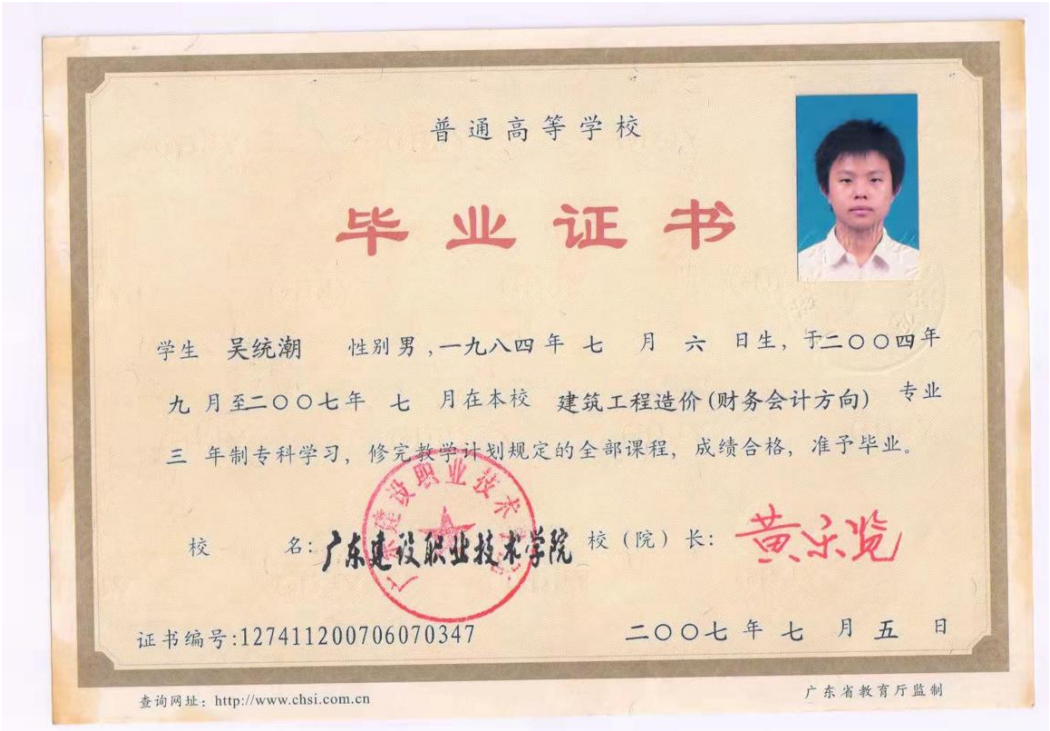 普通高等学校
毕业证书
学生 吴统潮 性别男,一九八四年 七 月 六 日生,于二〇〇四年
九 月至二〇〇七年 七 月在本校 建筑工程造价(财务会计方向) 专业
三 年制专科学习,修完教学计划规定的全部课程,成绩合格,准予毕业。
校 名:广东建设职业技术学院 校(院)长:
广东建设职业技术学院
证书编号:127411200706070347 二〇〇七年 七 月 五 日
查询网址:http://www.chsi.com.cn 广东省教育厅监制